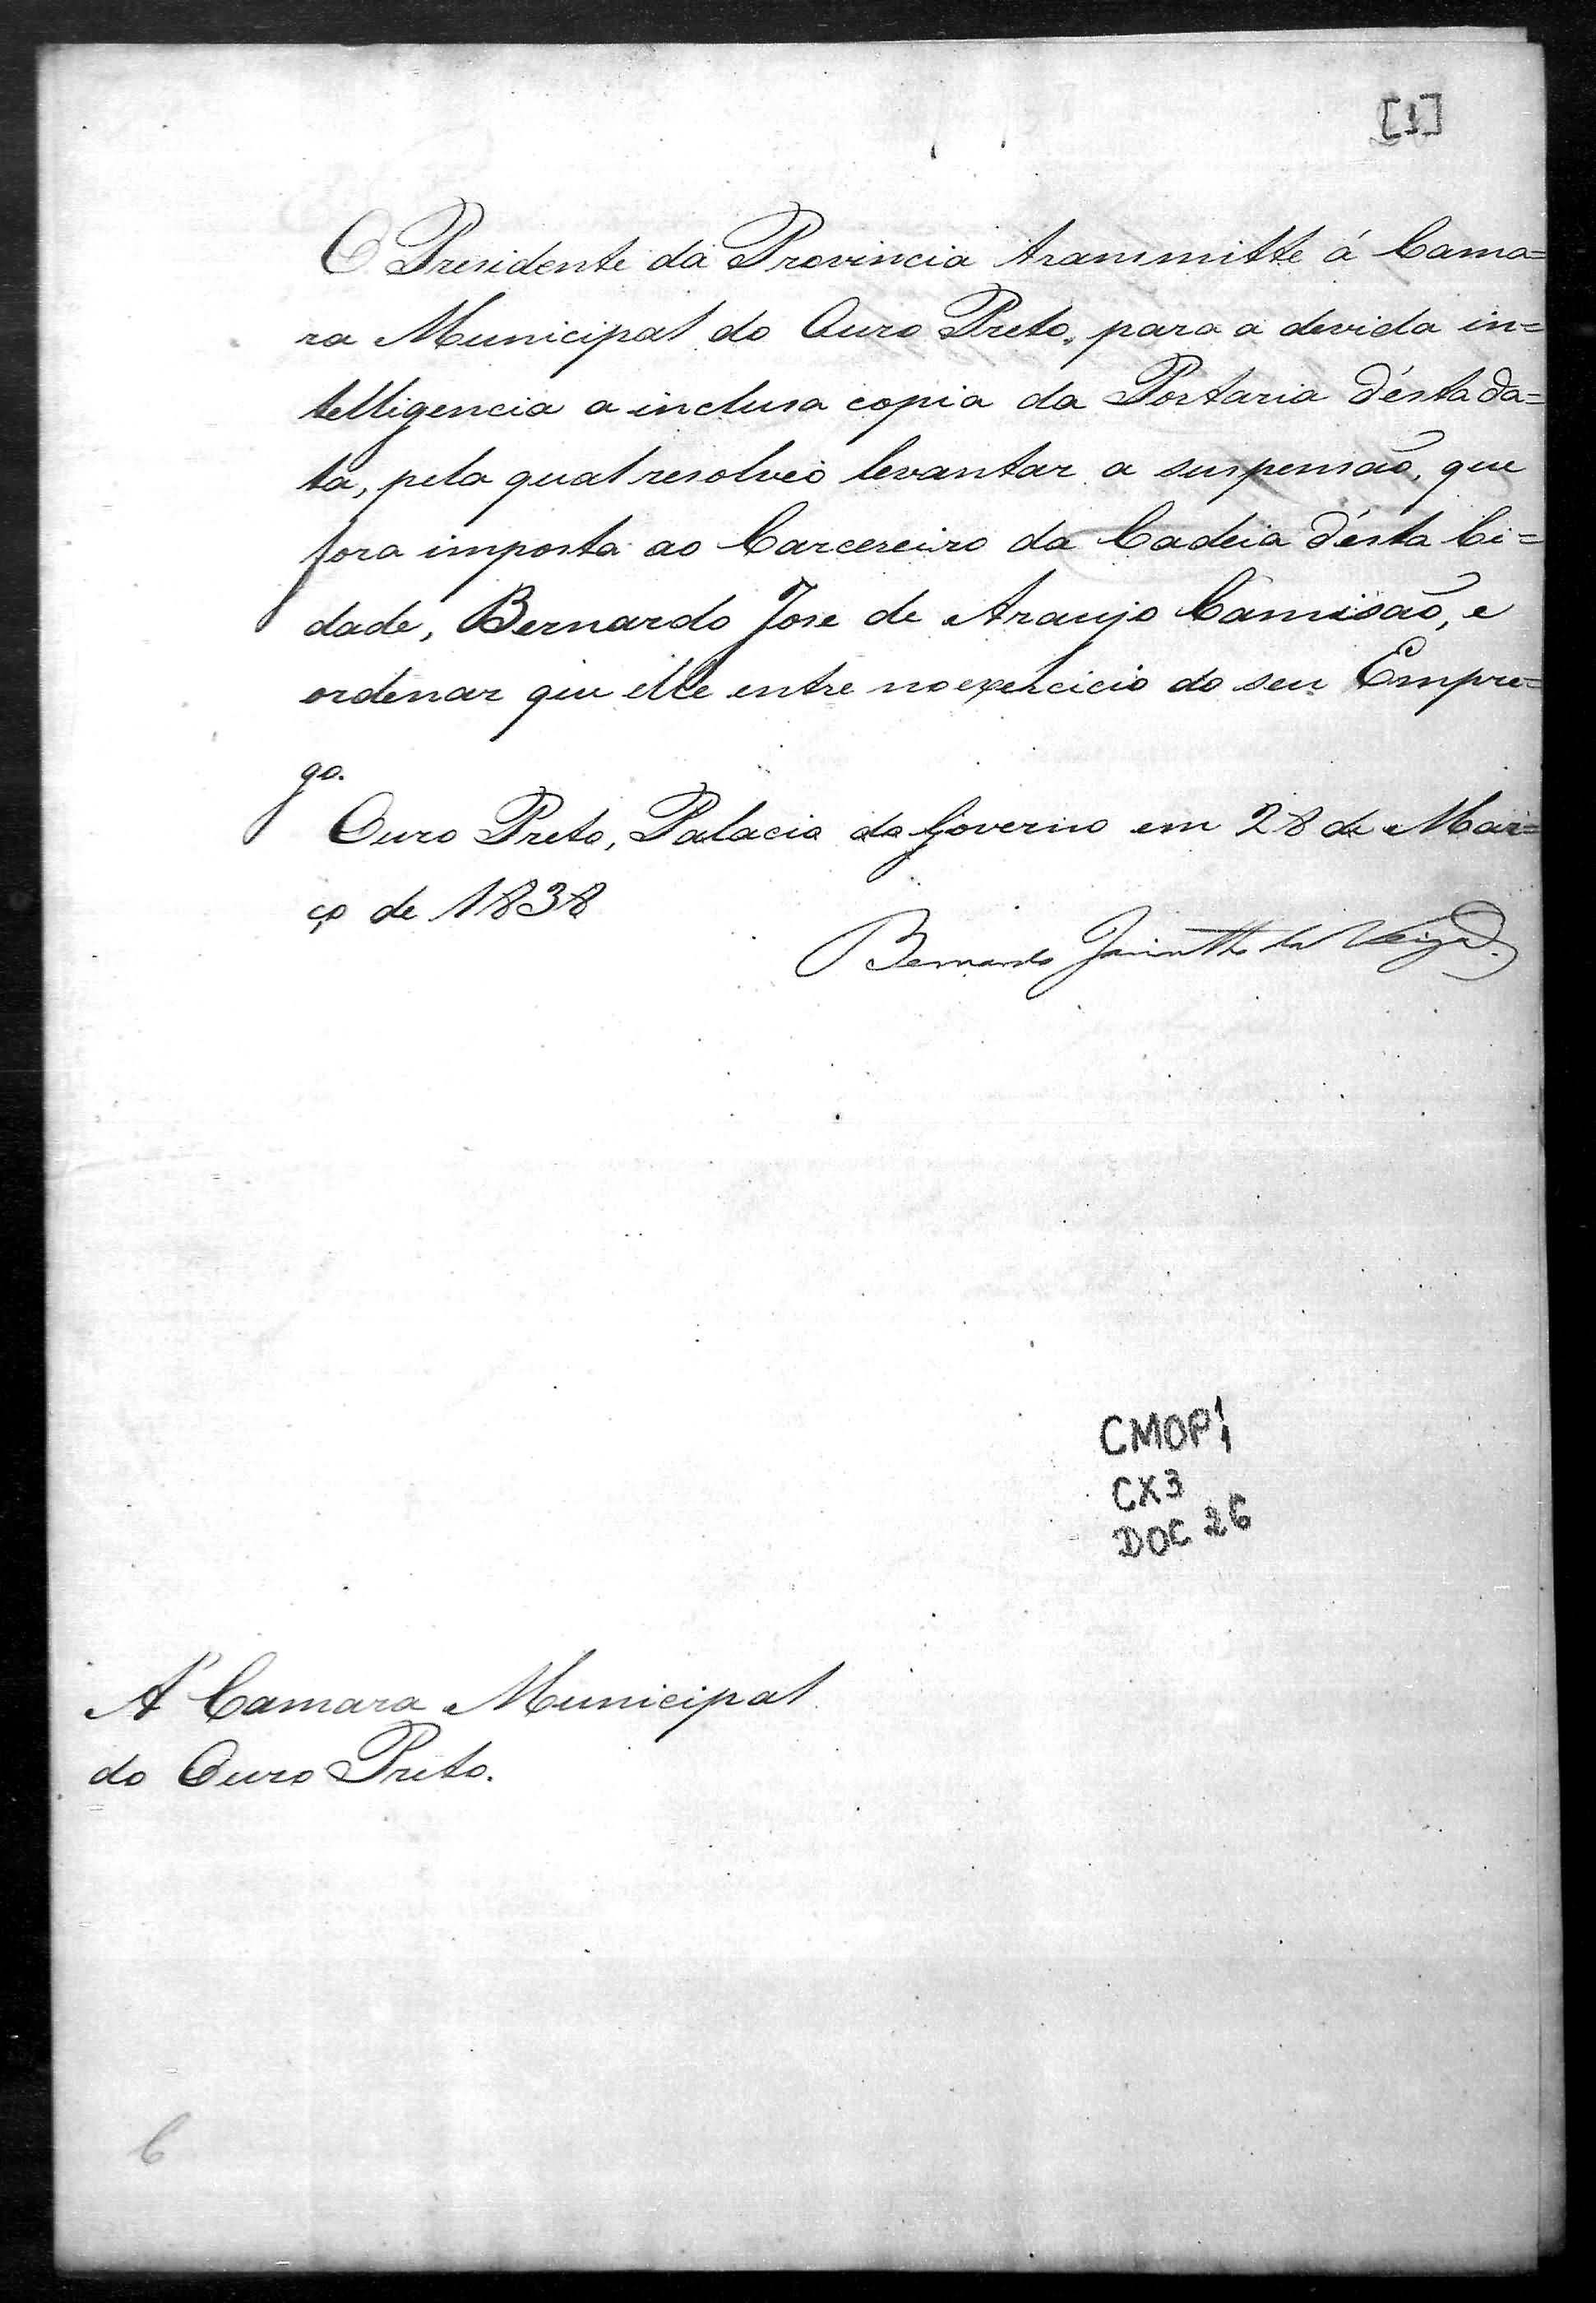 [1]
O Presidente da Provincia transmitte á Cama=
ra Municipal do Ouro Preto, para a devida in=
telligencia a inclusa copia da Portaria d'ésta da=
ta, pela qual resolveo levantar a suspensão, que
fora imposta ao Carcereiro da Cadeia d'ésta Ci=
dade, Bernardo Jose de Araujo Camisão, e
ordenar que elle entre no exercicio do seu Empre=
go.
Ouro Preto, Palacio do Governo em 28 de Mar=
ço de 1838
Bernardo Jacintho da Veiga
CMOP 1
CX3
DOC 26
A' Camara Municipal
do Ouro Preto.
6